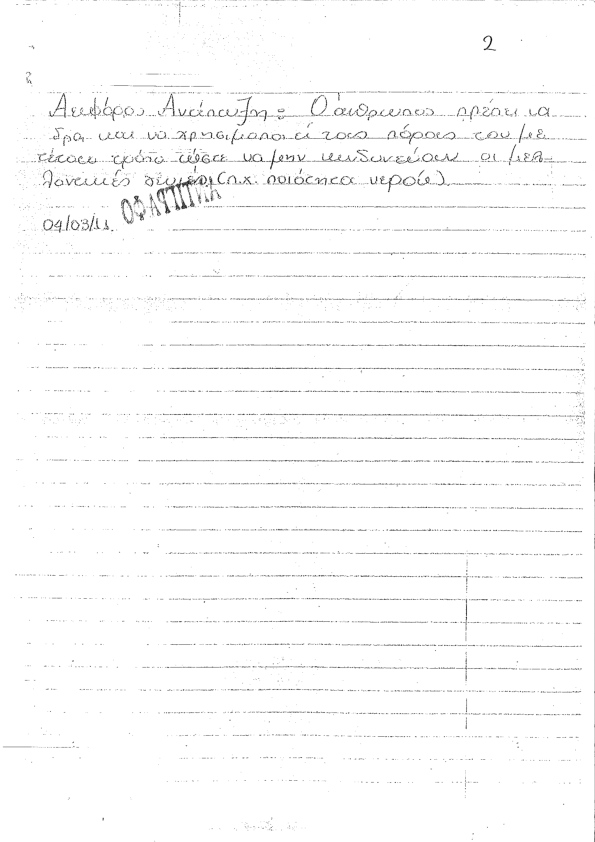 2
Αειφόρος Ανάπτυξη: Ο άνθρωπος πρέπει να
δρα και να χρησιμοποιεί τους πόρους του με
τέτοιο τρόπο ώστε να μην κινδυνεύουν οι μελ-
λοντικές γενιές (π.χ. ποιότητα νερού).
04/03/11.